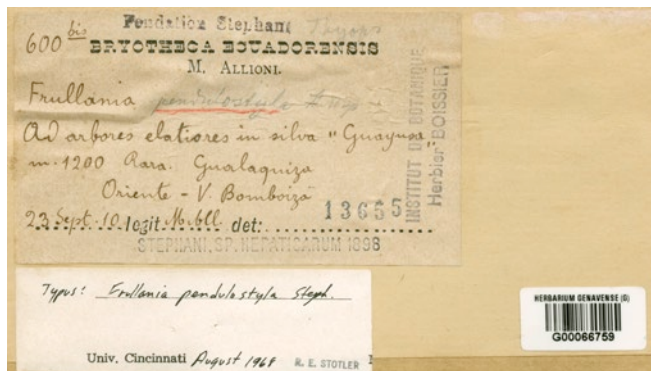 Fondation Stephani
600 bis
BRYOTHECA ECUADORENSIS
M. ALLIONI.
Frullania pendulostyla
Ad arbores elatiores in silva "Guayusa"
m. 1200 Rara. Gualaquiza
Oriente - V. Bomboiza
13655
23 Sept. 10 legit M. All. det:
STEPHANI, SP. HEPATICARUM 1898
INSTITUT DE BOTANIQUE
Herbier BOISSIER
Typus: Frullania pendulostyla Steph.
Univ. Cincinnati August 1969 R. E. STOTLER
HERBARIUM GENAVENSE (G)
G00066759